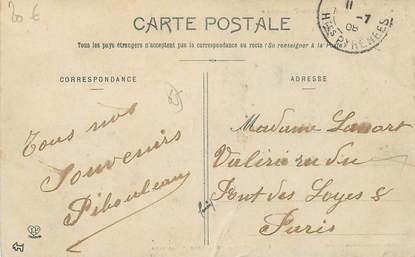 20 €
CARTE POSTALE
Tous les pays étrangers n'acceptent pas la correspondance au recto (Se renseigner à la Poste)
CORRESPONDANCE
ADRESSE
11
7 -7
08
Htes PYRENÉES
Tous nos
Souvenirs
Pibouleau
Madame
Valérie rue du
Pont des Loges 8
Paris